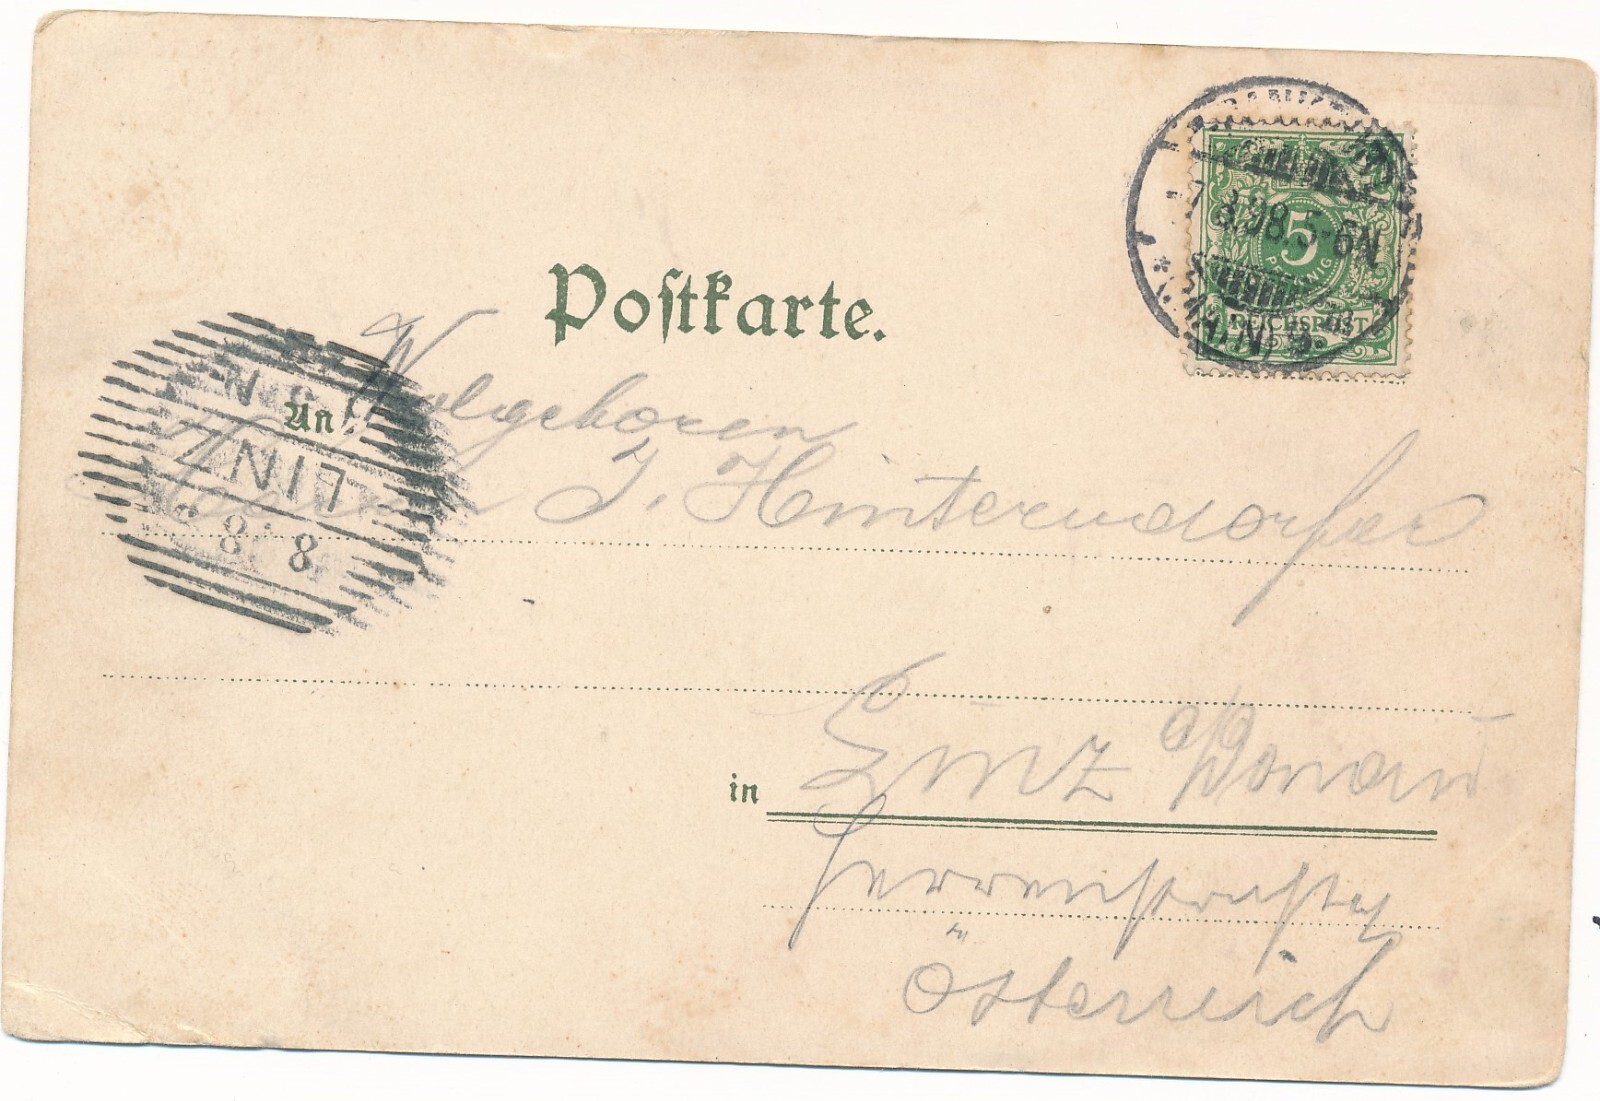 Postkarte.
7.8.98. 5-6N
5
PFENNIG
REICHSPOST
An
LINZ
8 8
Wolgeboren
Herrn J. Hinterndorfer
in Linz a/Donau
Herrenstraße
Österreich